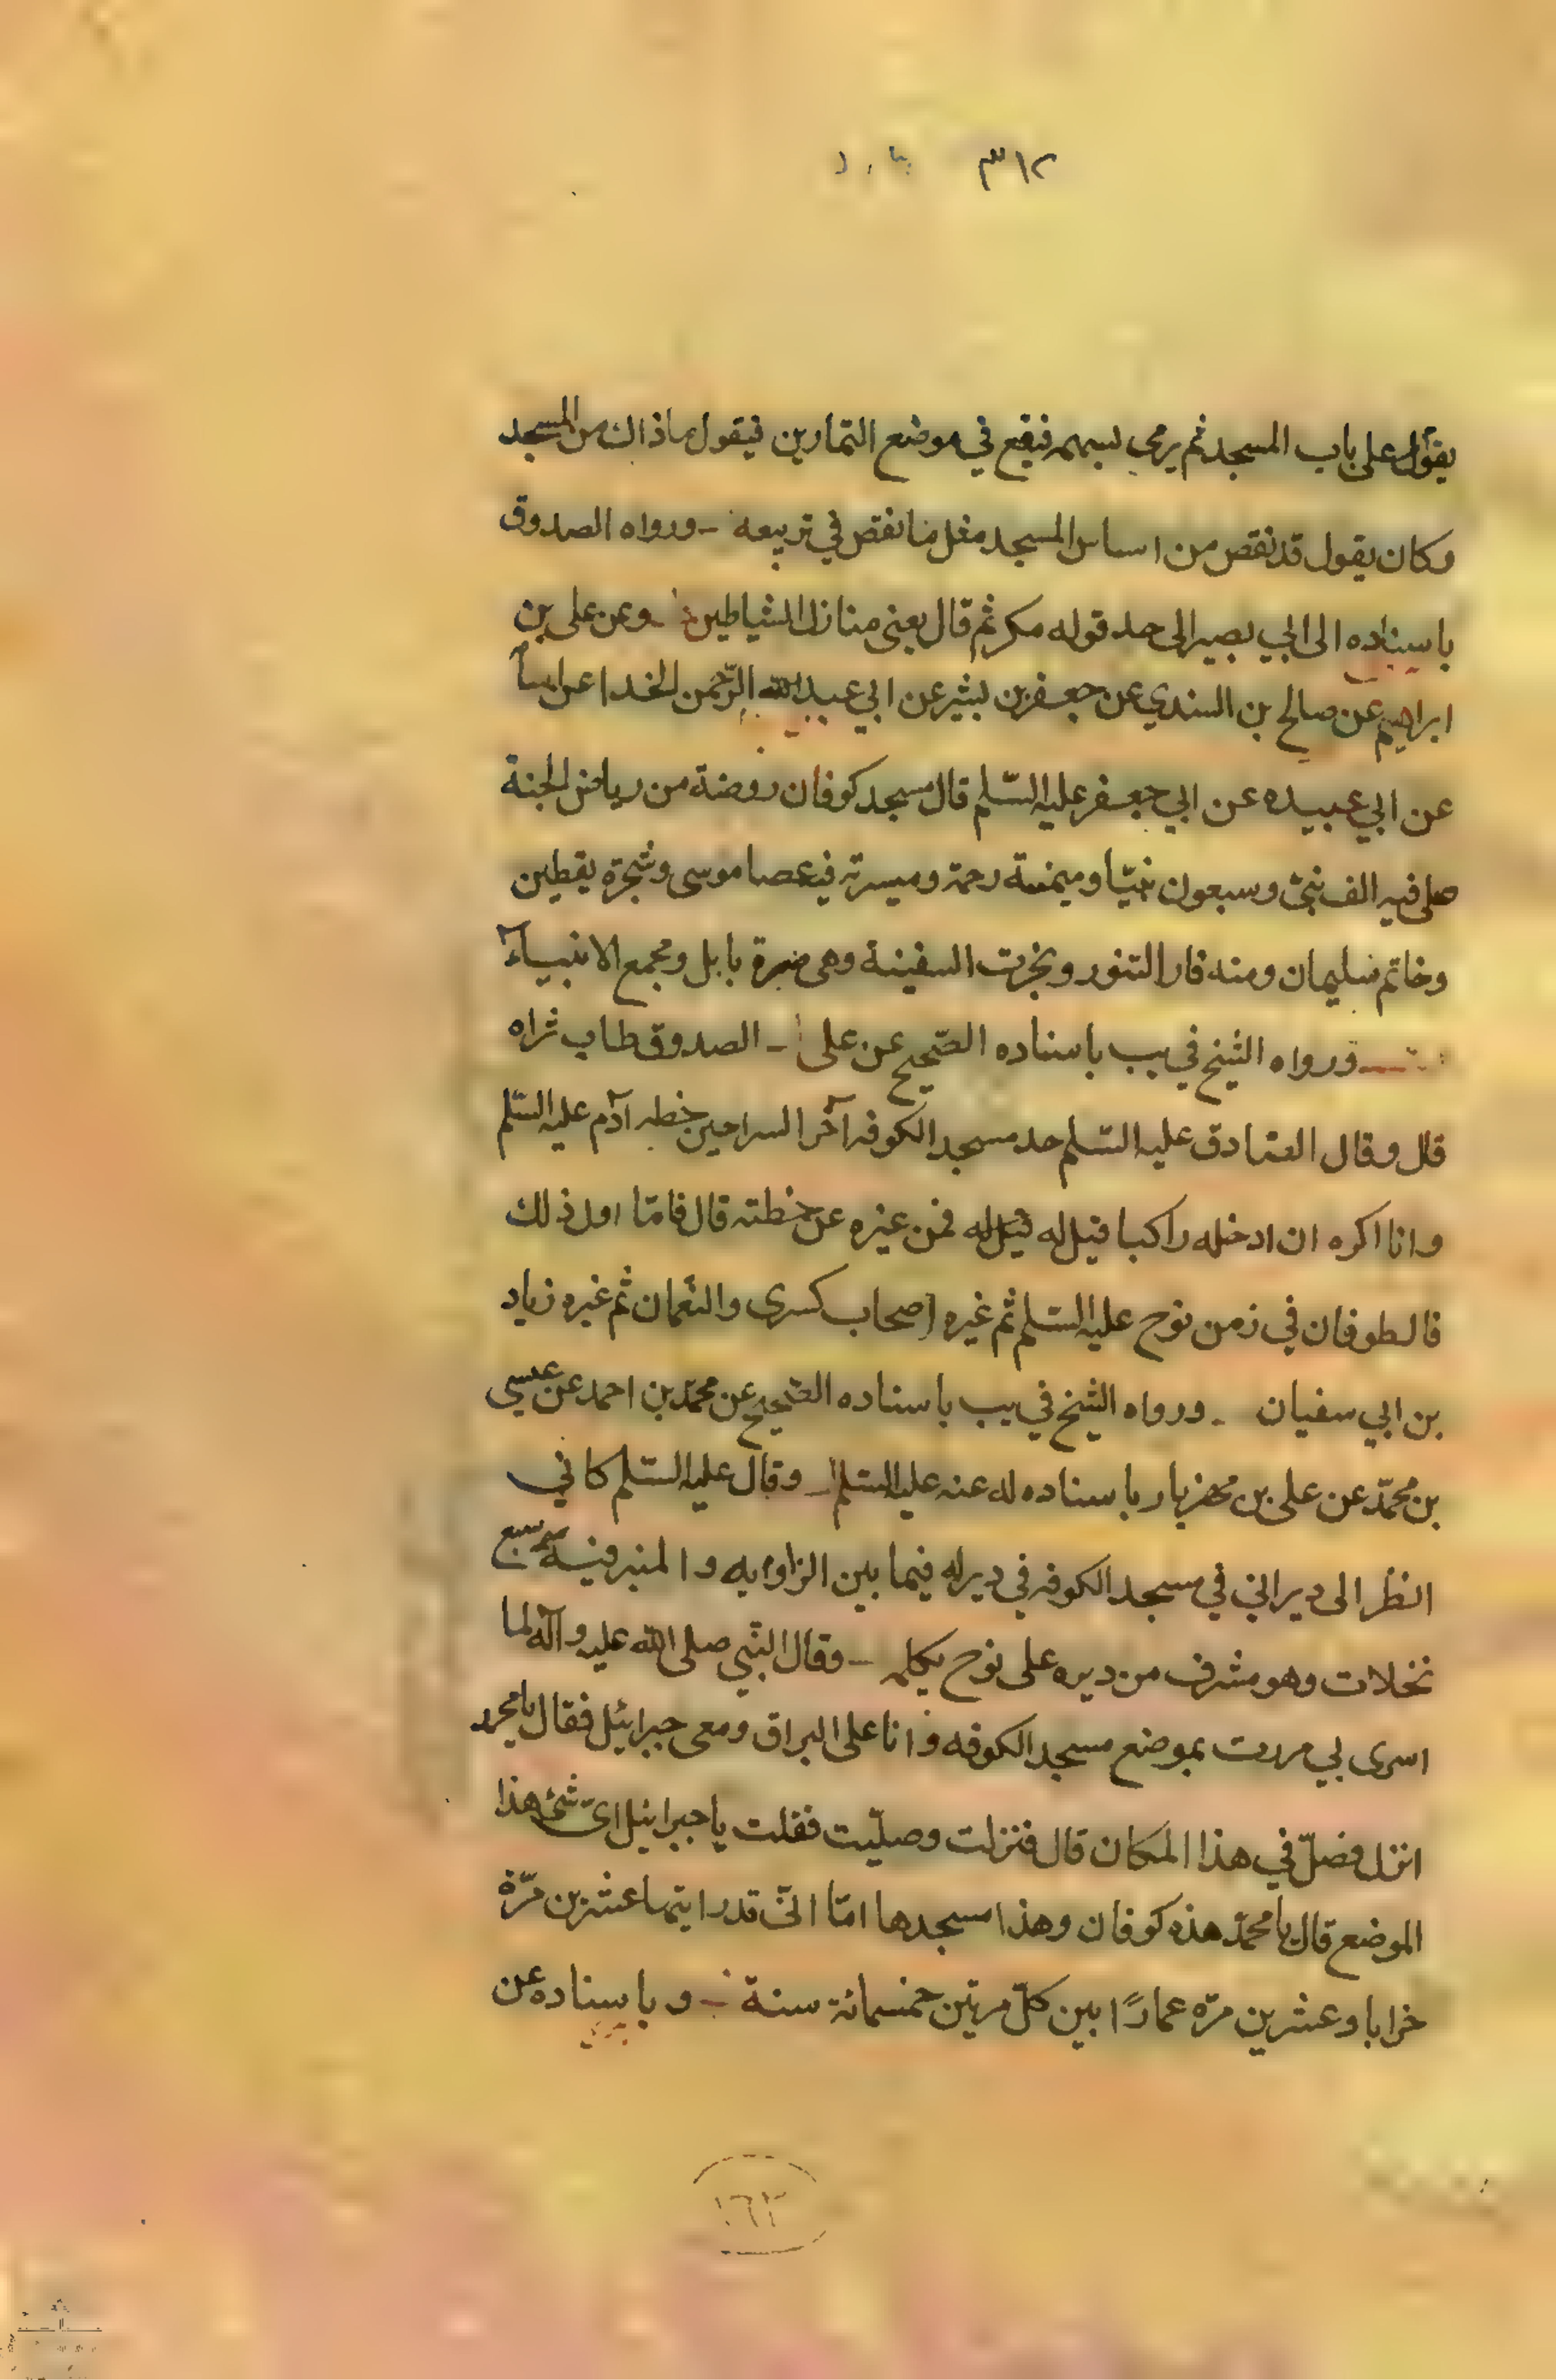 ٣١٢
يقول على باب المسجد ثم يرمي بسهمه فيقع في موضع التمارين فيقول ماذاك من المسجد
وكان يقول قد نقص من اساس المسجد مثل ما نقص في تربيعه ـ ورواه الصدوق
باسناده الى ابي بصير الى حد قوله مكر ثم قال يعني منازل الشياطين ـ وعن على بن
ابراهيم عن صالح بن السندي عن جعفر بن بشير عن ابي عبد الرّحمن الحذا عن اسا
عن ابي عبيده عن ابي جعفر عليه السّلم قال مسجد كوفان روضة من رياض الجنة
صلى فيه الف نبىّ وسبعون نبيّا وميمنته رحمة وميسرته فيه عصا موسى وشجرة يقطين
وخاتم سليمان ومنه فار التنور ونجرت السفينة وهى صرة بابل ومجمع الانبياء
ـ ورواه الشيخ في يب باسناده الصّحيح عن على ـ الصدوق طاب ثراه
قال وقال الصّادق عليه السّلم حد مسجد الكوفه آخر السراجين خطه آدم عليه السّلم
وانا اكره ان ادخله راكبا قيل له قيل له فمن غيره عن خطته قال فامّا اول ذلك
فالطوفان في زمن نوح عليه السّلم ثم غيره اصحاب كسرى والنعمان ثم غيره زياد
بن ابي سفيان ـ ورواه الشيخ في يب باسناده الصّحيح عن محمّد بن احمد عن عيسي
بن محمّد عن على بن مهزيار باسناده له عنه عليه السّلم ـ وقال عليه السّلم كاني
انظر الى ديراني في مسجد الكوفه في دير له فيما بين الزاويه والمنبر فيه سبع
نخلات وهو مشرف من ديره على نوح يكلمه ـ وقال النّبي صلى الله عليه وآله لما
اسرى بي مررت بموضع مسجد الكوفه وانا على البراق ومعى جبرائيل فقال يا محمد
انزل فصلّ في هذا المكان قال فنزلت وصلّيت فقلت يا جبرائيل اىّ شئ هذا
الموضع قال يا محمّد هذه كوفان وهذا مسجدها امّا انّى قد رايتها عشرين مرّة
خرابا وعشرين مرّه عمارًا بين كلّ مرتين خمسمائة سنة ـ وباسناده عن
١٦٢